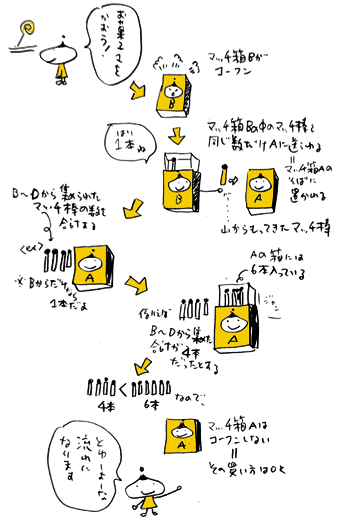 お菓子を
かおう!
マッチ箱Bが
コーフン
B
はい
1本ね
マッチ箱Bの中のマッチ棒と
同じ数だけAに送られる
=
マッチ箱Aの
そばに
置かれる
B
A
山からもってきたマッチ棒
B〜Dから集められた
マッチ棒の数を
合計する
<ex>
A
※Bからだけなら
1本だよ
Aの箱には
6本入っている
ジャン
例えば
B〜Dから集めた
合計が4本
だったとする
A
<
4本
6本
なので、
A
マッチ箱Aは
コーフンしない
=
その買い方はOK
とゆーよーな
流れに
なります